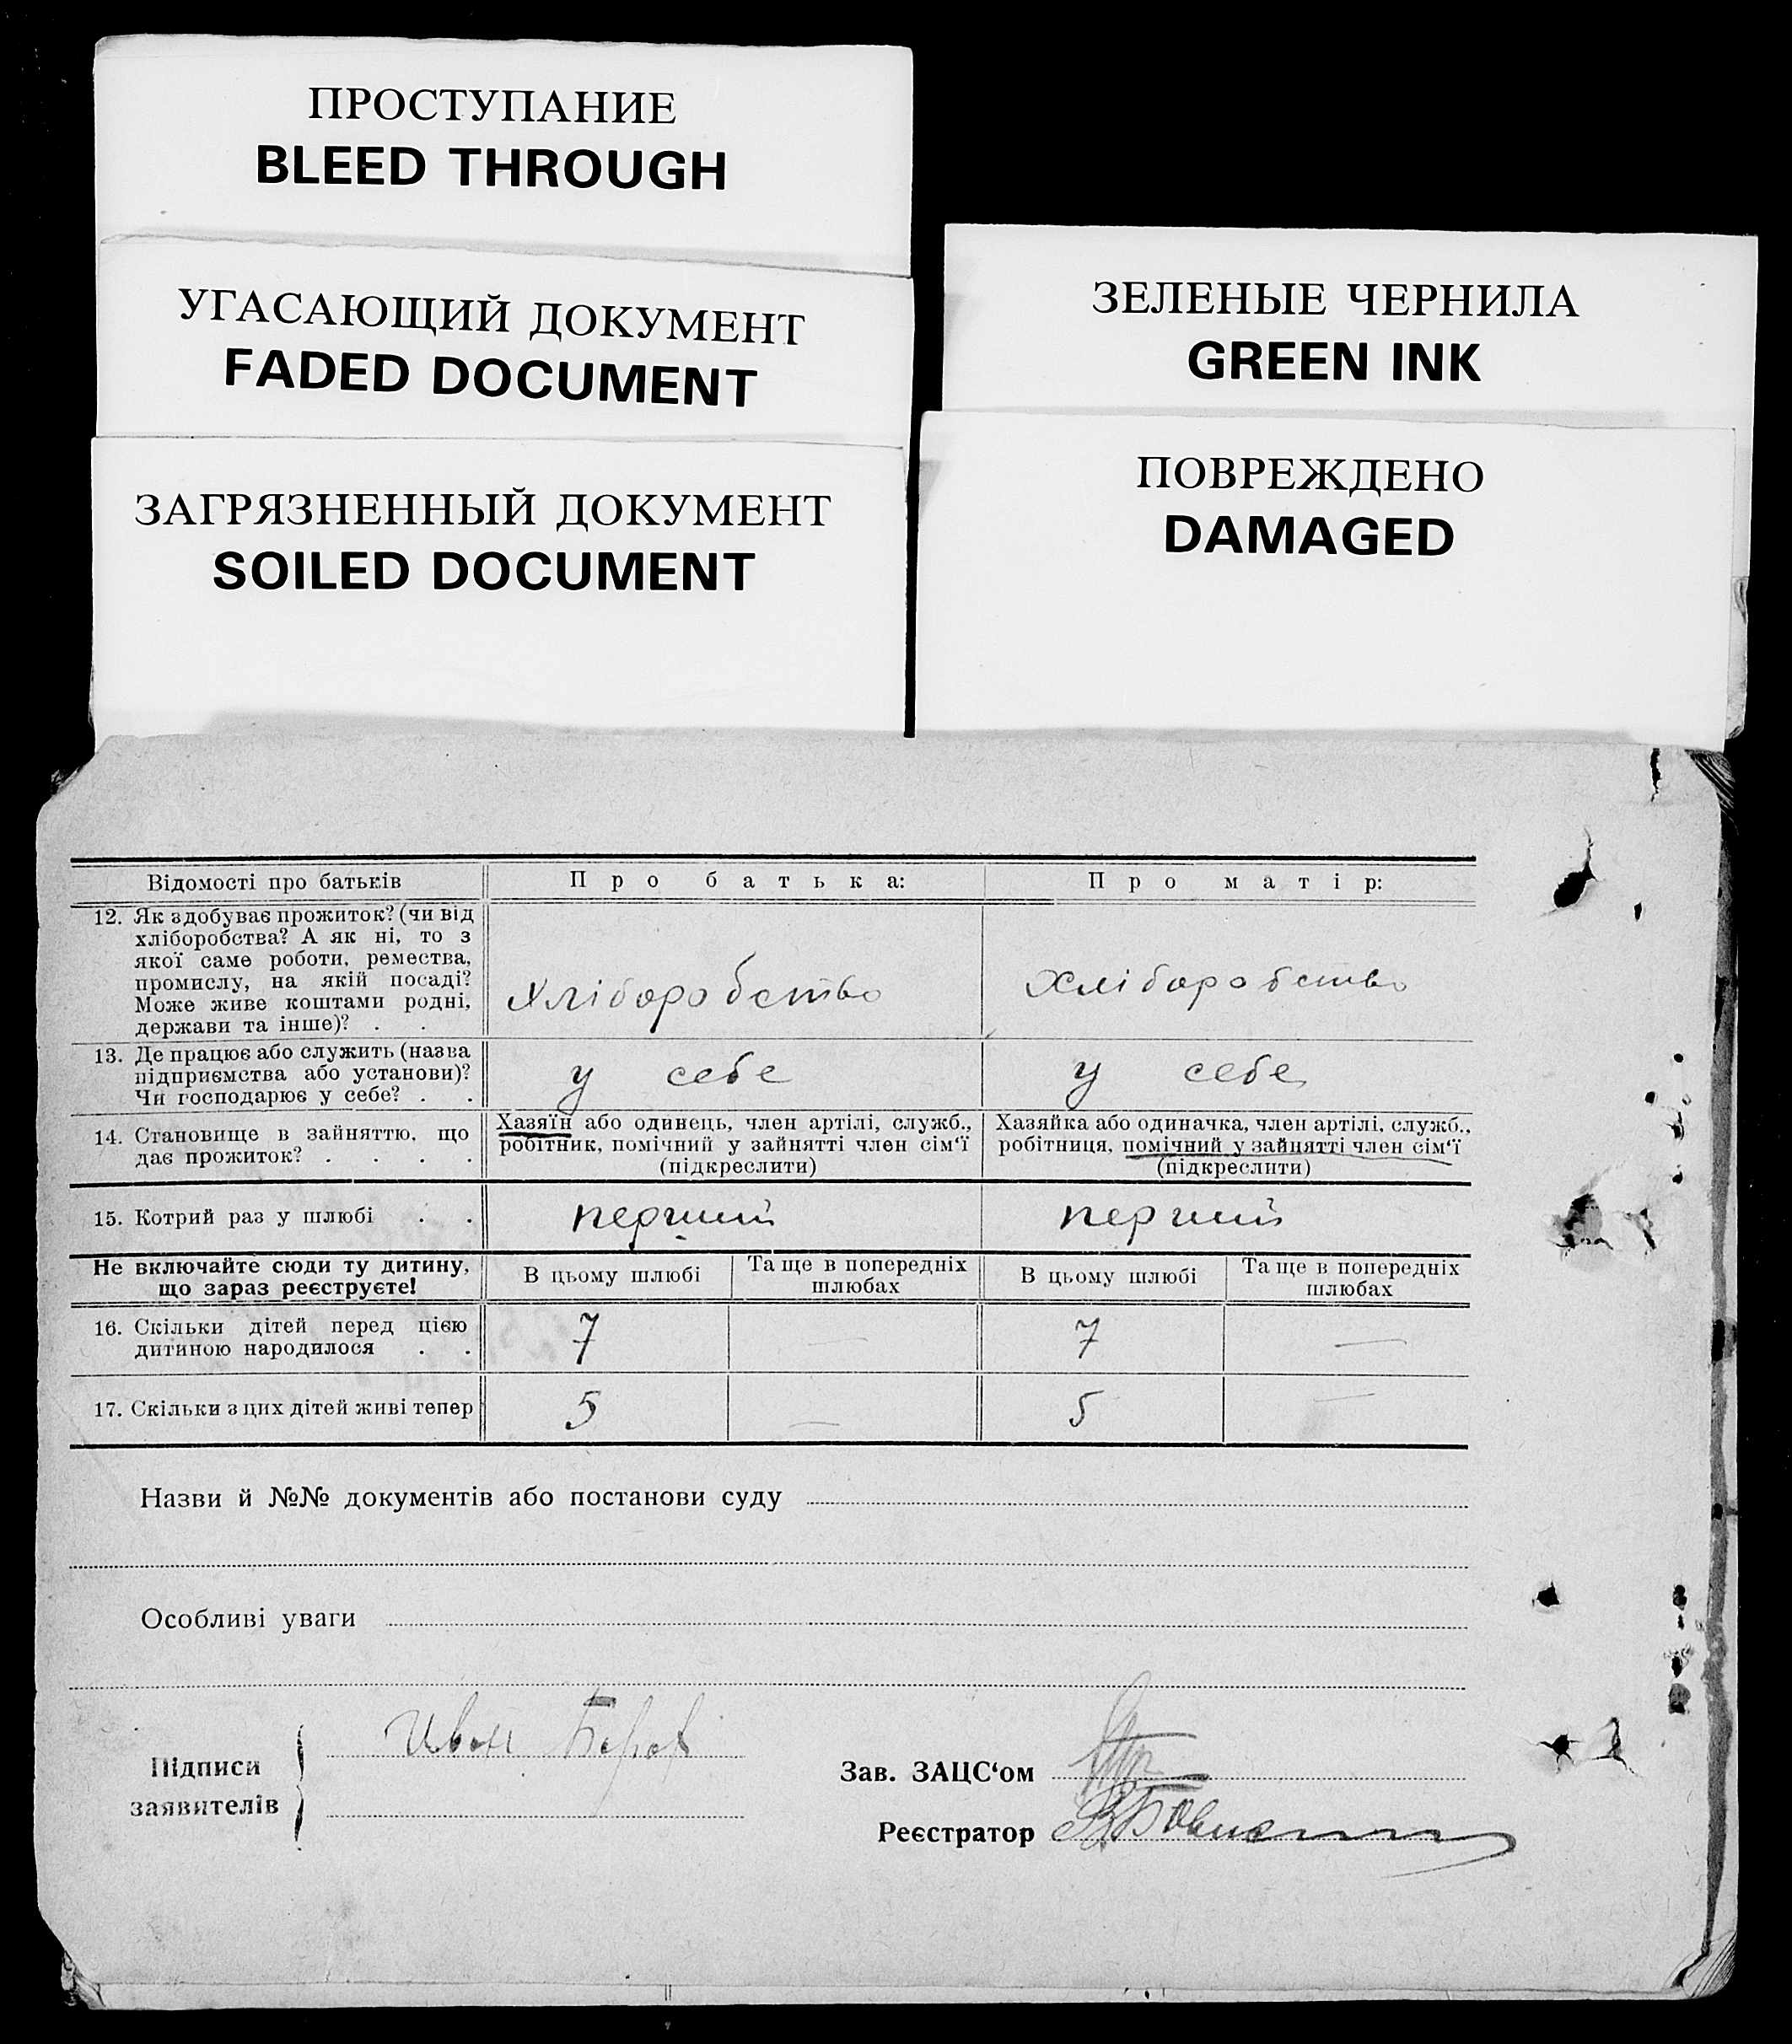 ПРОСТУПАНИЕ
BLEED THROUGH
УГАСАЮЩИЙ ДОКУМЕНТ
FADED DOCUMENT
ЗАГРЯЗНЕННЫЙ ДОКУМЕНТ
SOILED DOCUMENT
ЗЕЛЕНЫЕ ЧЕРНИЛА
GREEN INK
ПОВРЕЖДЕНО
DAMAGED
Відомості про батьків
Про батька:
Про матір:
12. Як здобуває прожиток? (чи від
хліборобства? А як ні, то з
якої саме роботи, ремества,
промислу, на якій посаді?
Може живе коштами родні,
держави та інше)? . .
Хліборобство
Хліборобство
13. Де працює або служить (назва
підприємства або установи)?
Чи господарює у себе? . .
у себе
у себе
14. Становище в зайняттю, що
дає прожиток? . . . .
Хазяїн або одинець, член артілі, служб.,
робітник, помічний у зайнятті член сім‘ї
(підкреслити)
Хазяйка або одиначка, член артілі, служб.,
робітниця, помічний у зайнятті член сім‘ї
(підкреслити)
15. Котрий раз у шлюбі . .
перший
перший
Не включайте сюди ту дитину,
що зараз реєструєте!
В цьому шлюбі
Та ще в попередніх
шлюбах
В цьому шлюбі
Та ще в попередніх
шлюбах
16. Скільки дітей перед цією
дитиною народилося . .
7
—
7
—
17. Скільки з цих дітей живі тепер
5
—
5
—
Назви й №№ документів або постанови суду
Особливі уваги
Підписи
заявителів
Иван
Зав. ЗАЦС‘ом
Реєстратор